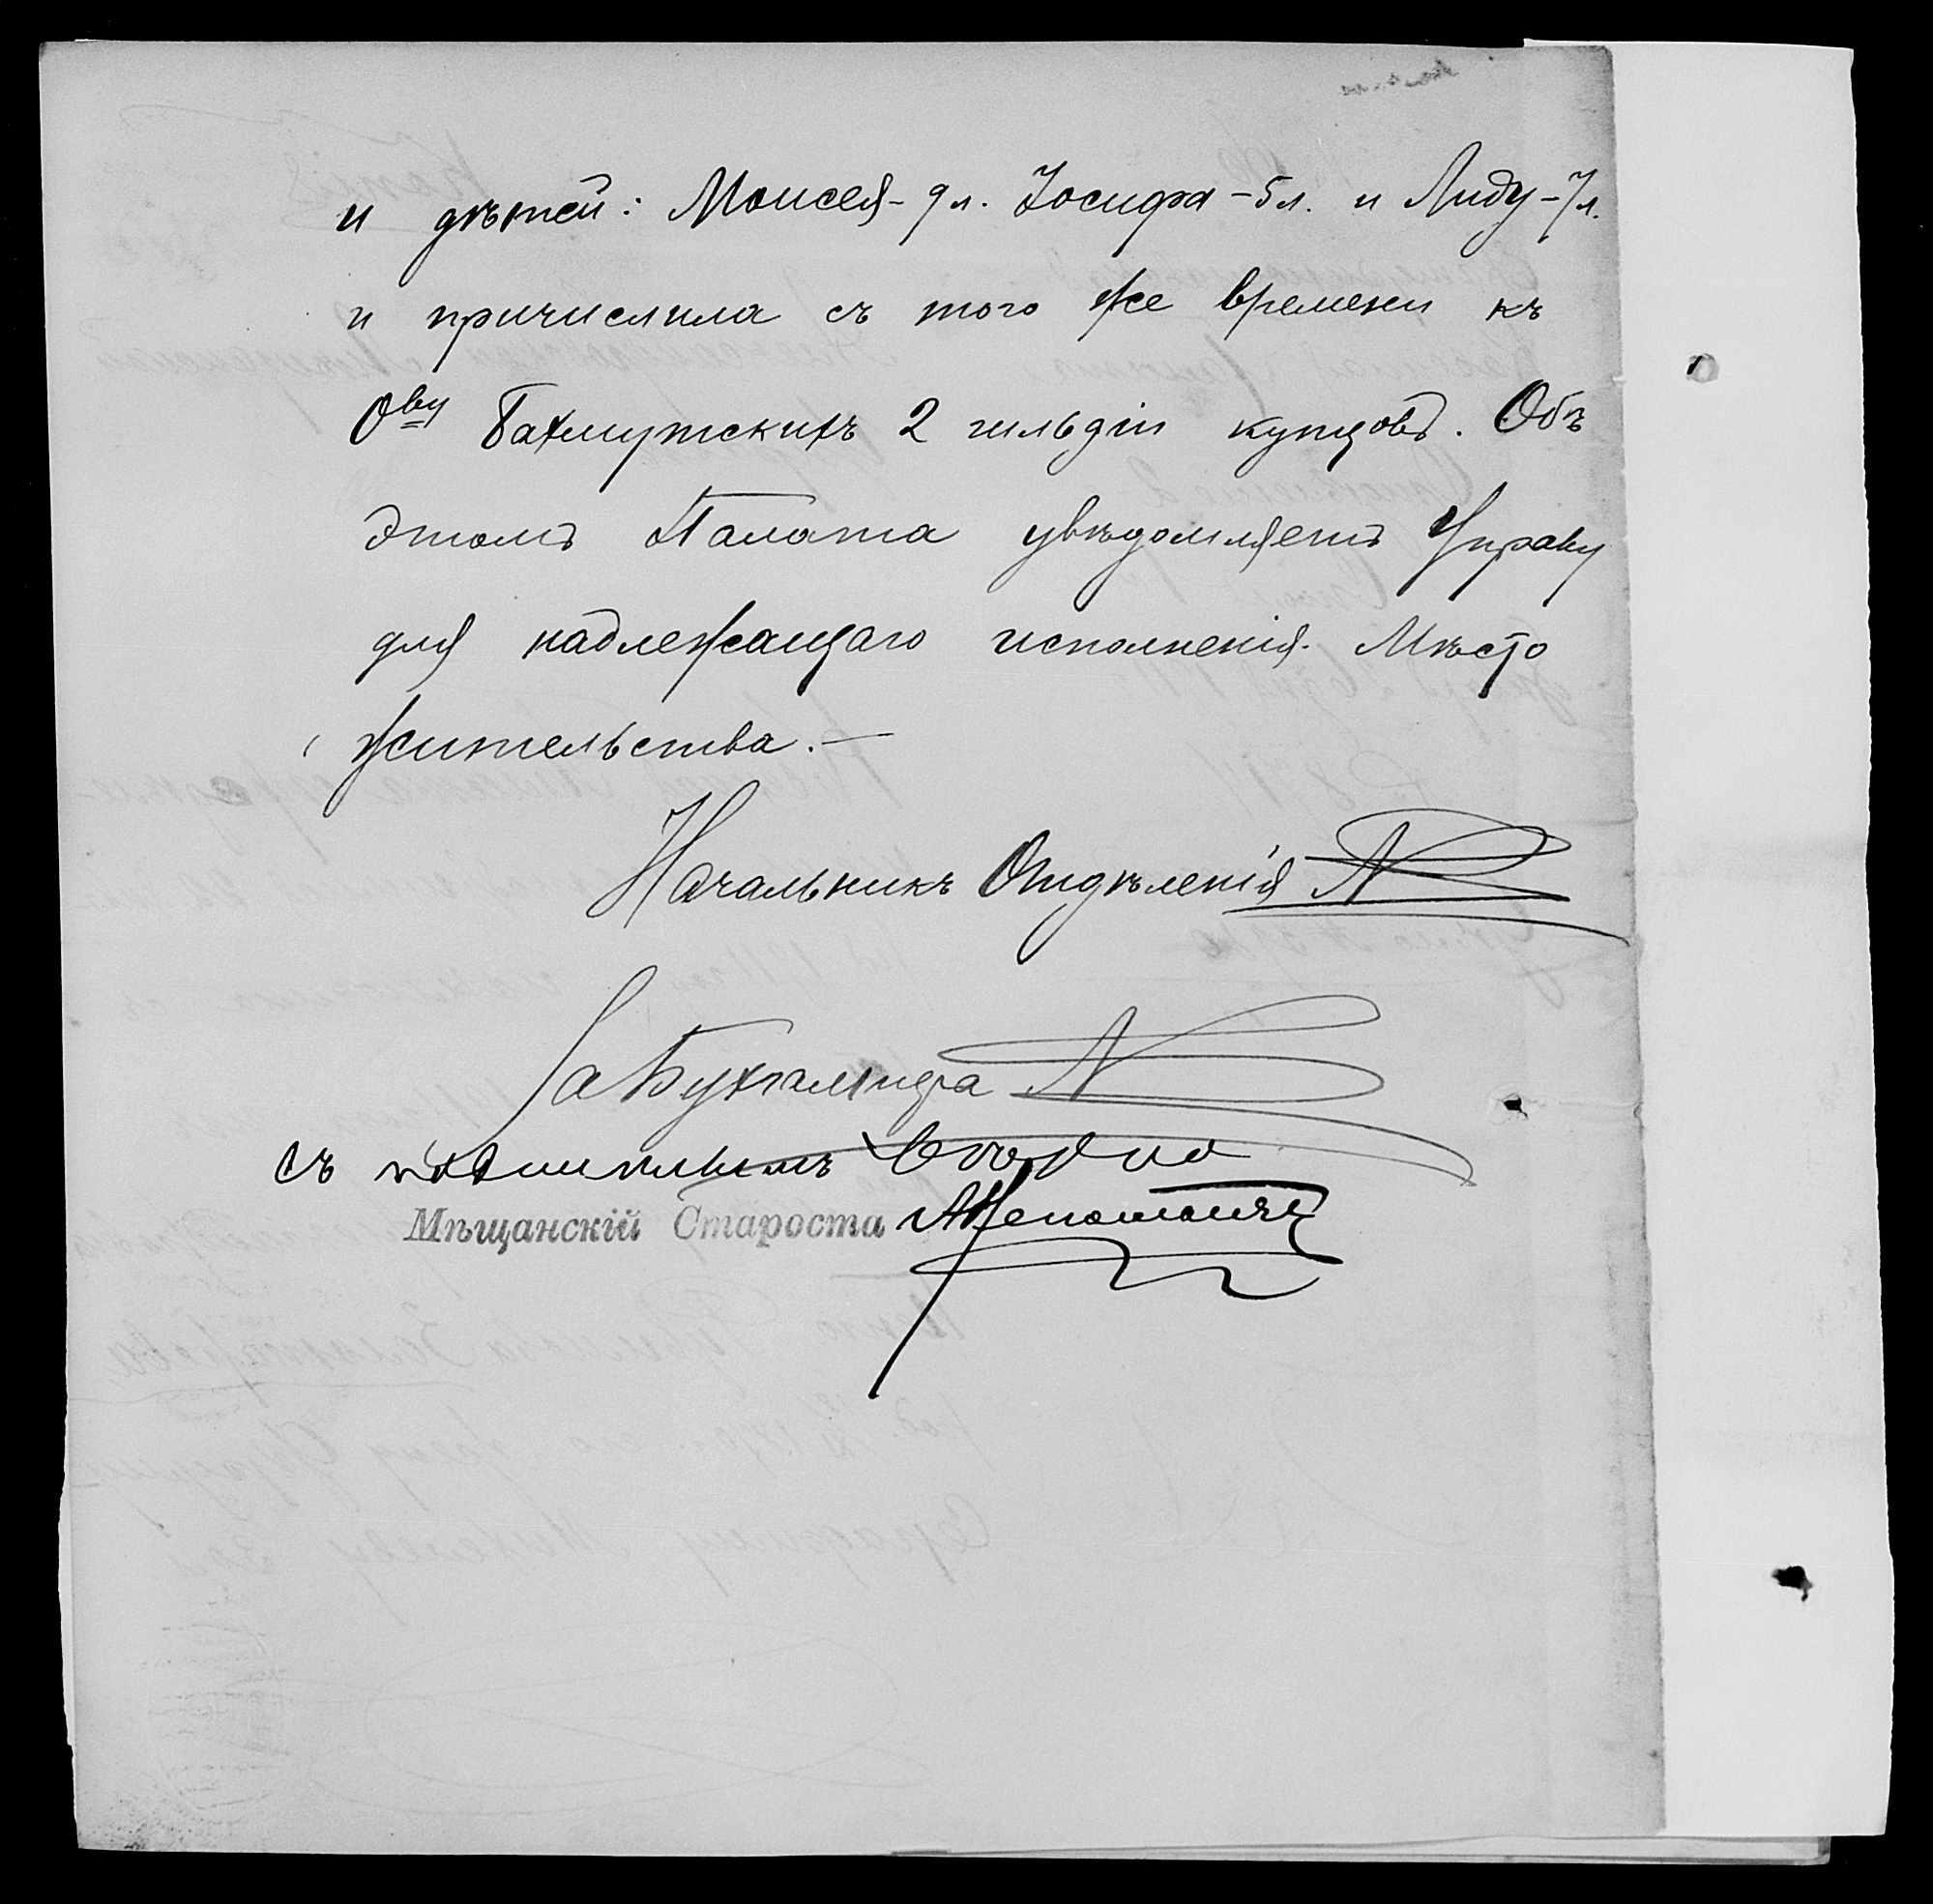 и дѣтей: Моисея - 9 л. Іосифа - 5 л. и Лиду - 7 л.
и причислила съ того же времени къ
О-ву Бахмутскихъ 2 гильдіи купцовъ. Объ
этомъ Палата увѣдомляетъ Управу
для надлежащаго исполненія. Мѣсто
жительства. —
Начальникъ Отдѣленія
За Бухгалтера
Съ подлиннымъ вѣрно
Мѣщанскій Староста